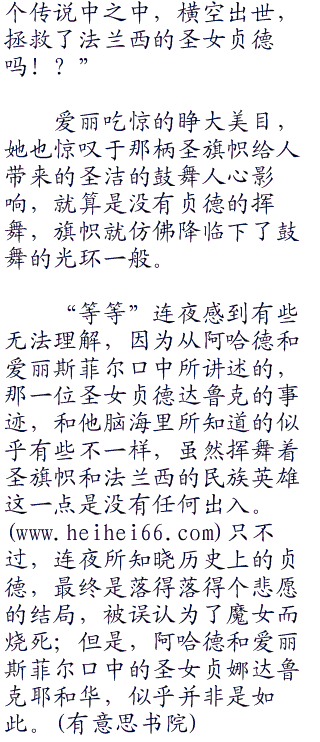 个传说中之中，横空出世，
拯救了法兰西的圣女贞德
吗！？”
爱丽吃惊的睁大美目，
她也惊叹于那柄圣旗帜给人
带来的圣洁的鼓舞人心影
响，就算是没有贞德的挥
舞，旗帜就仿佛降临下了鼓
舞的光环一般。
“等等”连夜感到有些
无法理解，因为从阿哈德和
爱丽斯菲尔口中所讲述的，
那一位圣女贞德达鲁克的事
迹，和他脑海里所知道的似
乎有些不一样，虽然挥舞着
圣旗帜和法兰西的民族英雄
这一点是没有任何出入。
(www.heihei66.com)只不
过，连夜所知晓历史上的贞
德，最终是落得落得个悲愿
的结局，被误认为了魔女而
烧死；但是，阿哈德和爱丽
斯菲尔口中的圣女贞娜达鲁
克耶和华，似乎并非是如
此。(有意思书院)